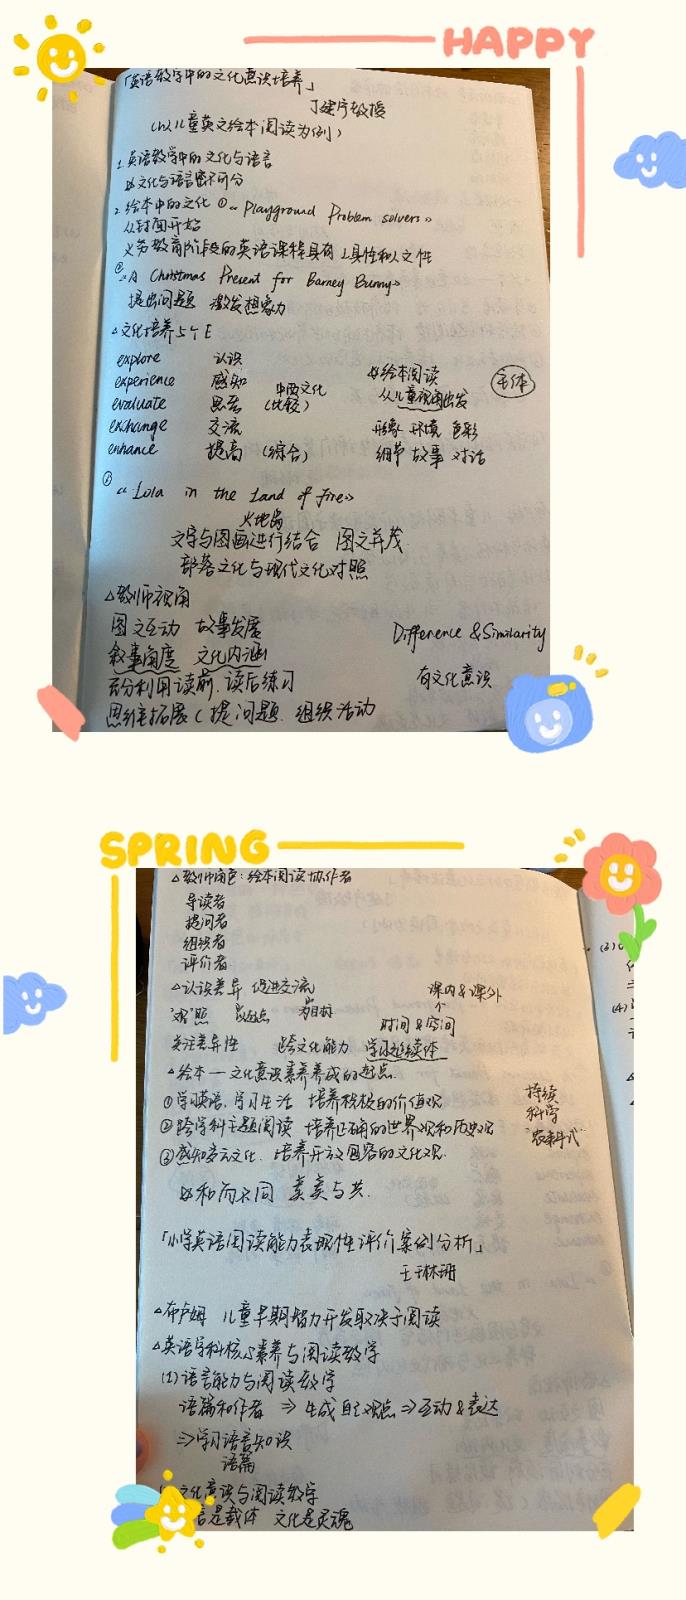 HAPPY
「英语教学中的文化意识培养」
丁建宁教授
(以儿童英文绘本阅读为例)
1. 英语教学中的文化与语言
文化与语言密不可分
2. 绘本中的文化 ①《Playground Problem solvers》
从封面开始
义务教育阶段的英语课程具有工具性和人文性
②《A Christmas Present for Barney Bunny》
提出问题 激发想象力
△文化培养5个E
explore 认识
experience 感知 中西文化
evaluate 思考 (比较)
exchange 交流
enhance 提高 (综合)
绘本阅读
从儿童视角出发
主体
形象 环境 色彩
细节 故事 对话
《Lola in the Land of fire》
火地岛
文字与图画进行结合 图文并茂
部落文化与现代文化对照
△教师视角
图文互动 故事发展
叙事角度 文化内涵
充分利用读前、读后练习
思维拓展(提问题、组织活动
Difference & Similarity
有文化意识
SPRING
△教师角色:绘本阅读协作者
导读者
提问者
组织者
评价者
△认识差异 促进交流
课内&课外
时间&空间
关注差异性 跨文化能力 学习连续体
△绘本—文化意识素养养成的起点
①学习英语、学习生活 培养积极的价值观
②跨学科主题阅读 培养正确的世界观和历史观
③感知多元文化、培养开放包容的文化观
持续
科学
和而不同 美美与共.
「小学英语阅读能力表现性评价案例分析」
王林珊
△布卢姆 儿童早期智力开发取决于阅读
△英语学科核心素养与阅读教学
(1)语言能力与阅读教学
语篇和作者 ⇒ 生成自己观点 ⇒ 互动&表达
⇒学习语言知识
语篇
文化意识与阅读教学
言是载体 文化是灵魂